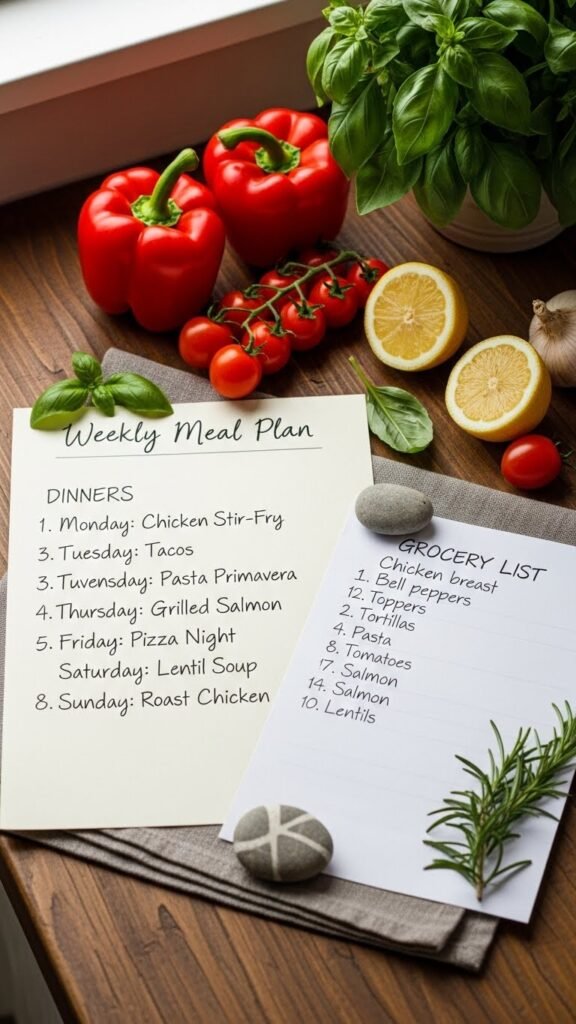 Weekly Meal Plan
DINNERS
1. Monday: Chicken Stir-Fry
3. Tuesday: Tacos
3. Tuvensday: Pasta Primavera
4. Thursday: Grilled Salmon
5. Friday: Pizza Night
Saturday: Lentil Soup
8. Sunday: Roast Chicken
GROCERY LIST
Chicken breast
1. Bell peppers
12. Toppers
2. Tortillas
4. Pasta
8. Tomatoes
17. Salmon
14. Salmon
10. Lentils